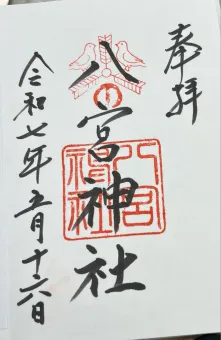 奉拝
八宮神社
八宮神社
令和七年五月十六日